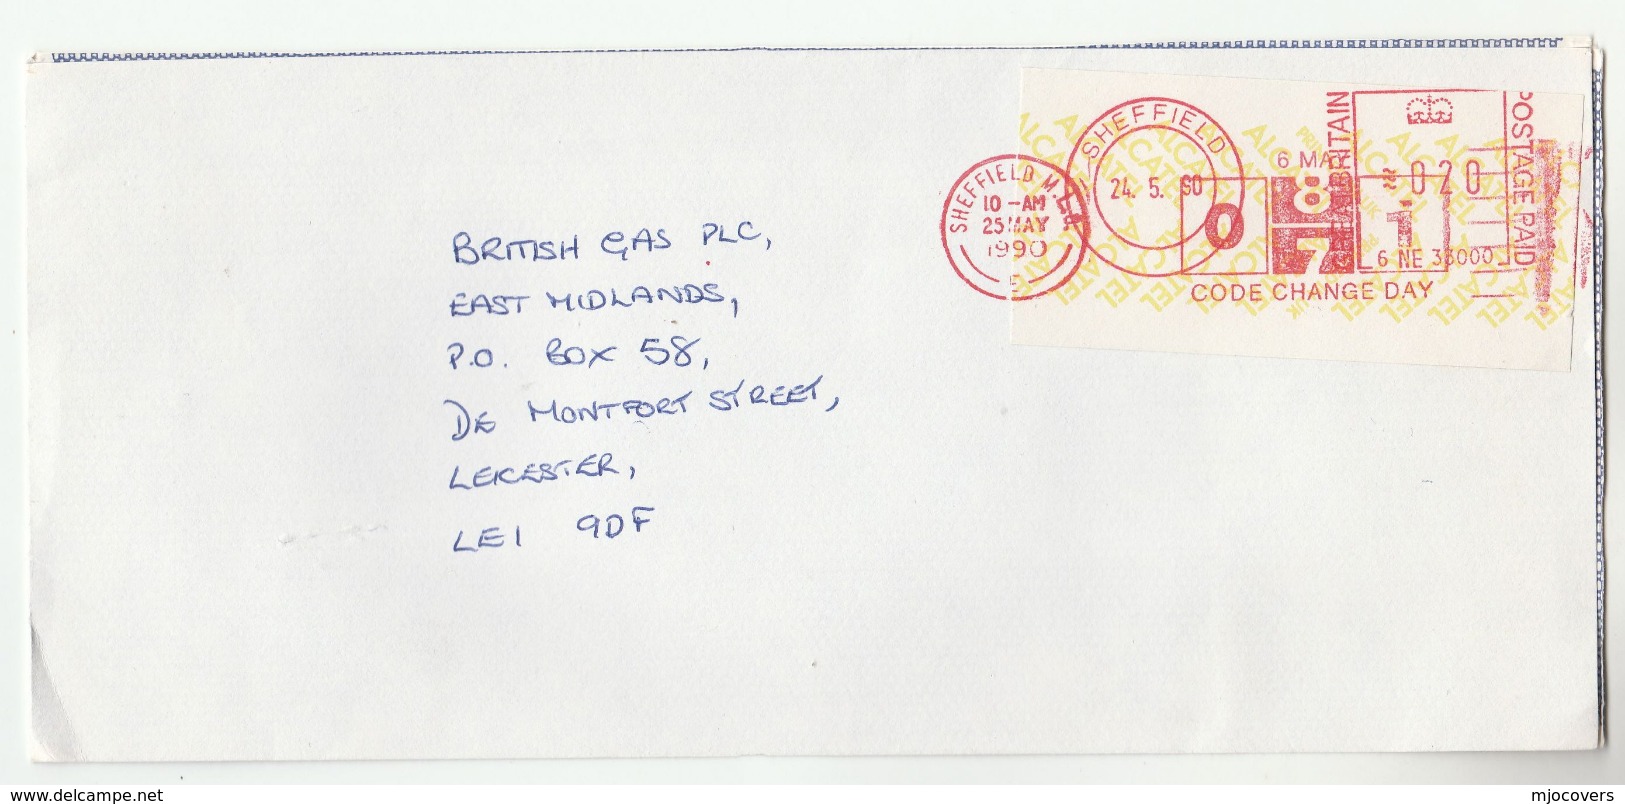 BRITISH GAS PLC,
EAST MIDLANDS,
P.O. BOX 58,
DE MONTFORT STREET,
LEICESTER,
LE1 9DF
SHEFFIELD
10-AM
25 MAY
1990
SHEFFIELD
24. 5. 90
6 MAY
0 8 1
7
CODE CHANGE DAY
BRITAIN
020
6 NE 36000
POSTAGE PAID
ALCATEL
www.delcampe.net
mjocovers